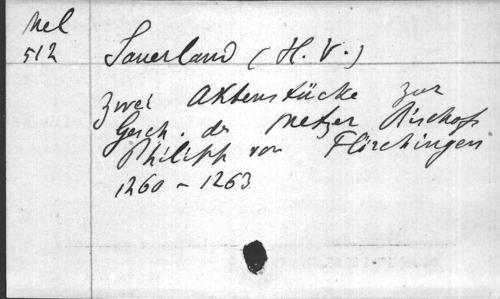 Mel
512
Sauerland (H. V.)
Zwei Aktenstücke zur
Gesch. des Metzer Bischofs
Philipp von Flörchingen
1260 - 1263